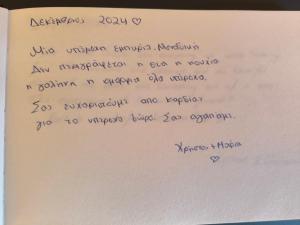 Δεκέμβριος 2024 ♡
Μια υπέροχη εμπειρία. Μοναδική
Δεν περιγράφεται η θέα η ησυχία
η γαλήνη η ομορφιά όλα υπέροχα.
Σας ευχαριστούμε από καρδιάς
για το υπέροχο δώρο. Σας αγαπάμε.
Χρήστος + Μαρία
♡